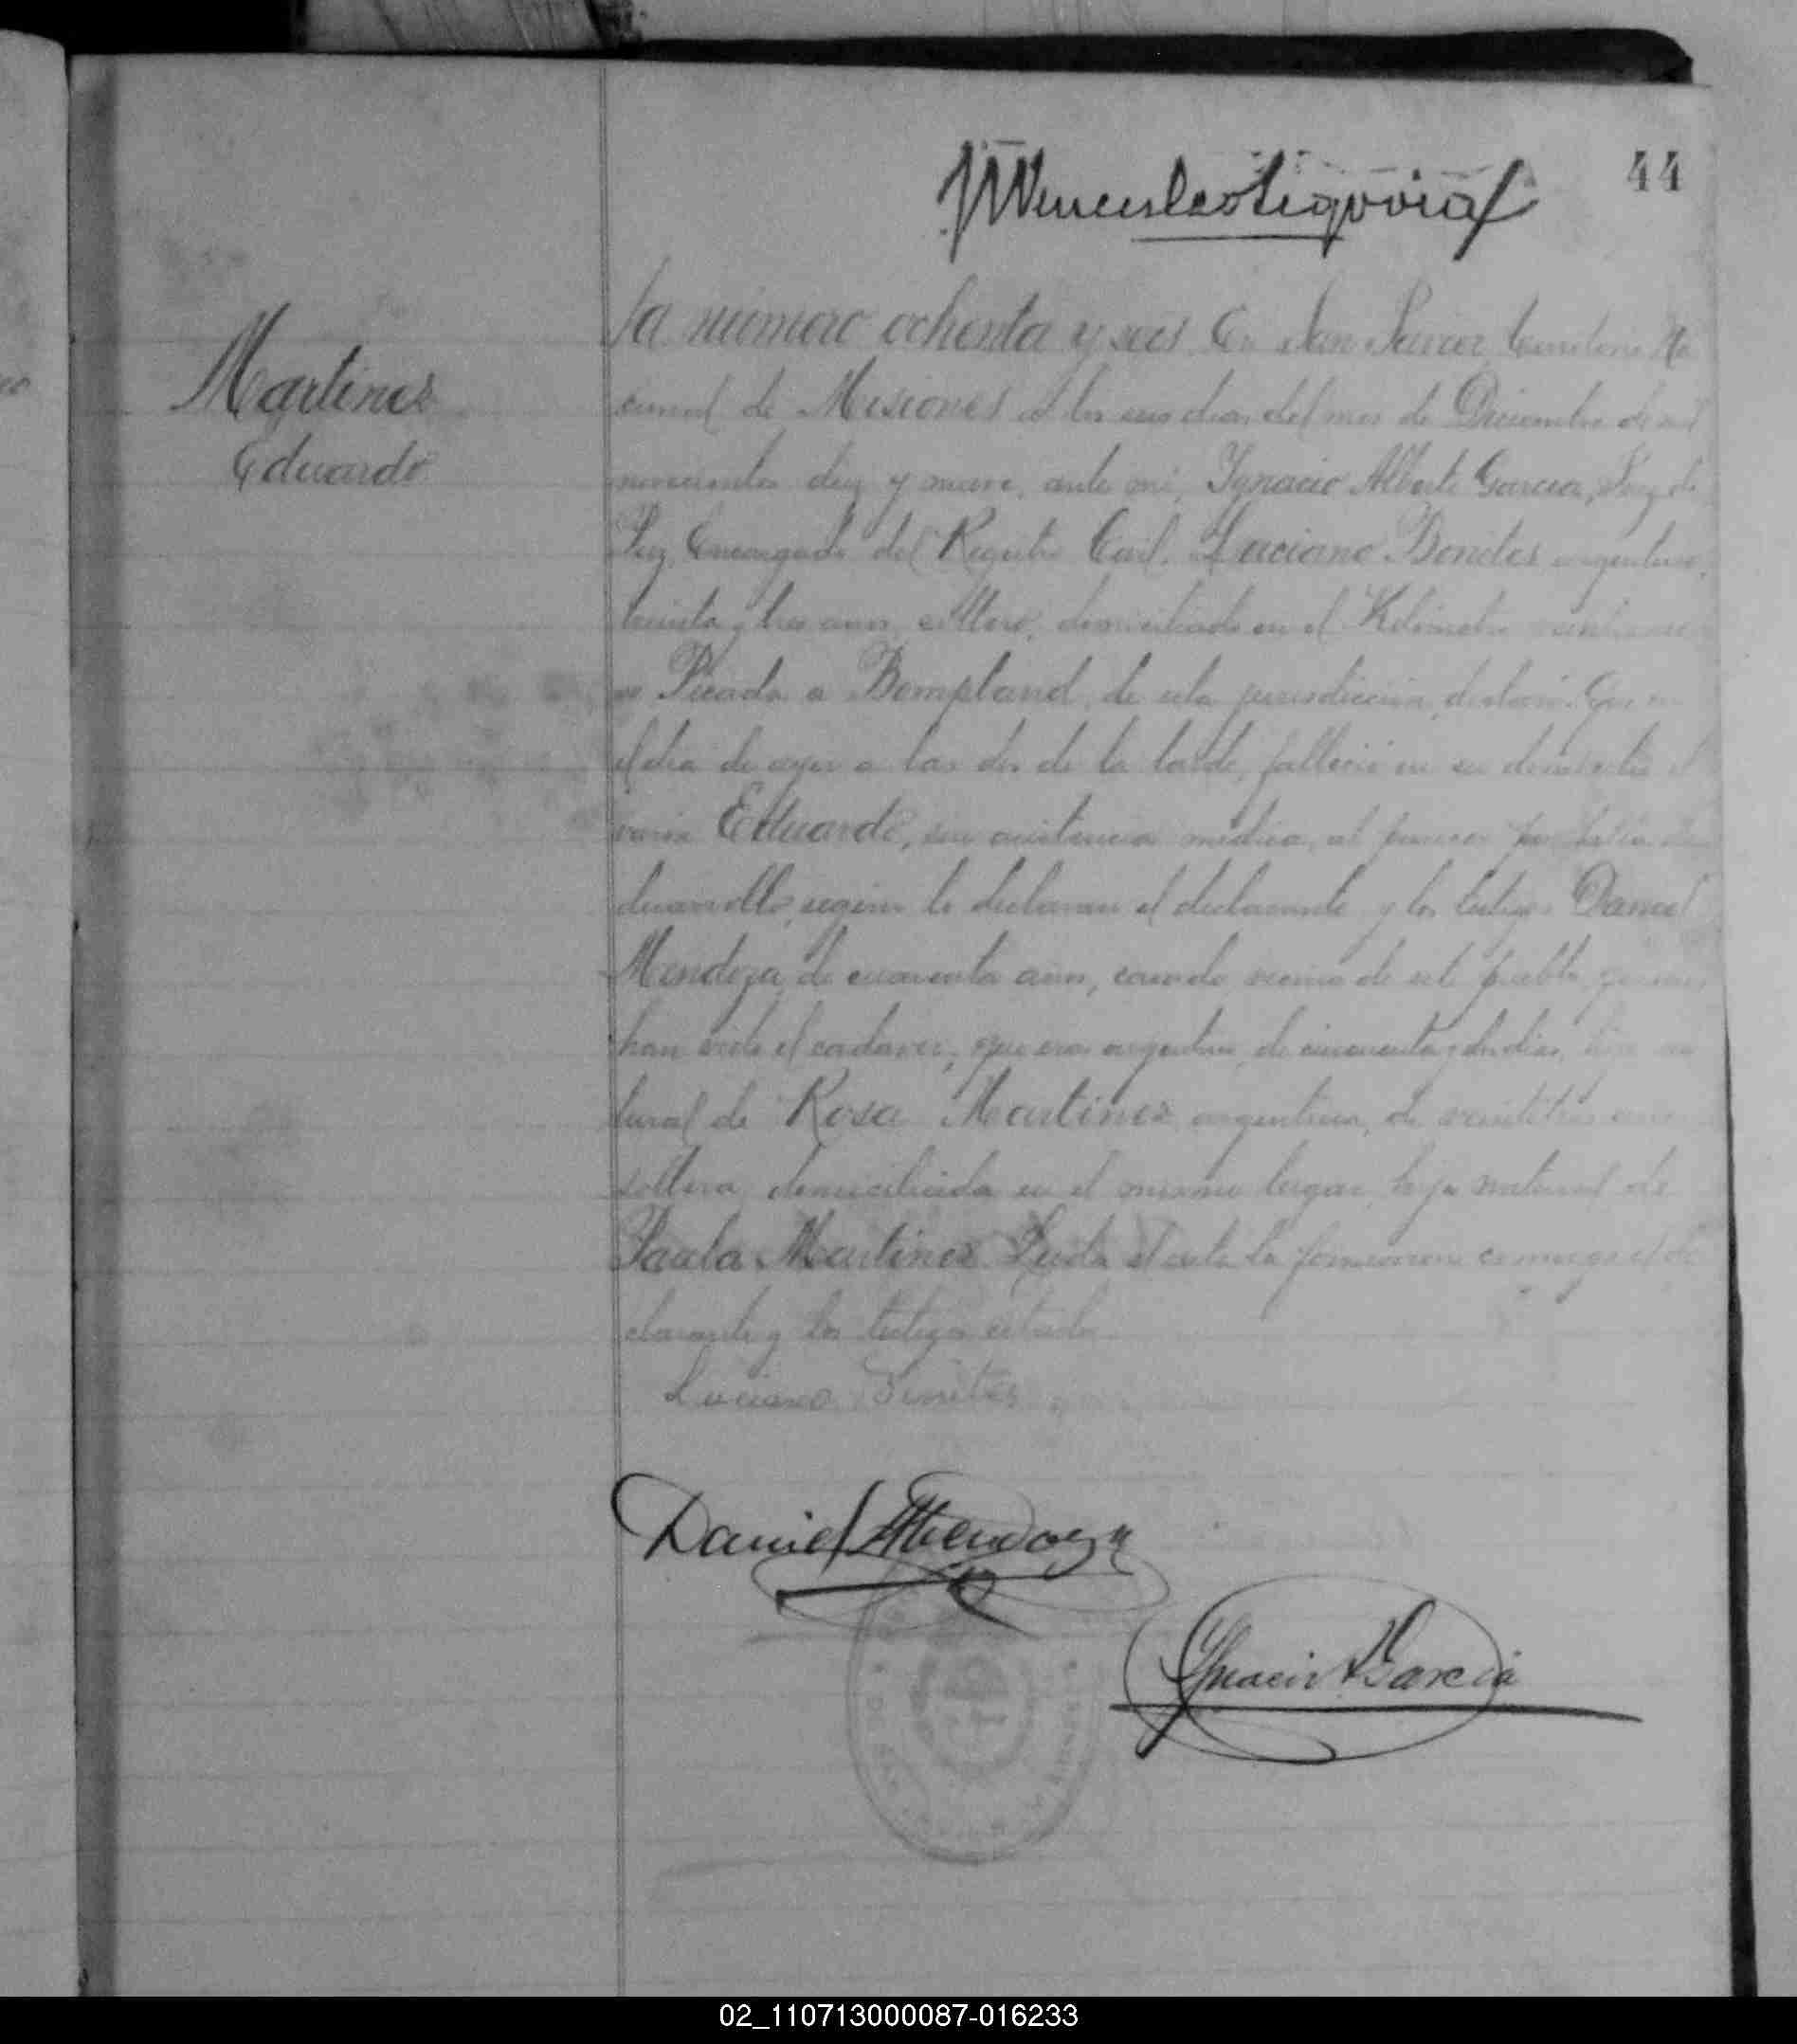 44
Martinez
Eduardo
ta número ochenta y seis. En San Javier, Territorio Na
cional de Misiones a los seis dias del mes de Diciembre de mil
novecientos diez y nueve, ante mi, Ygnacio Alberto Garcia, Juez de
Paz Encargado del Registro Civil. Luciano Benites argentino,
treinta y tres años, soltero, domiciliado en el Kilometro
Picada a Bompland, de esta jurisdicción, declaró: Que en
el dia de ayer a las dos de la tarde, falleció en su domicilio el
varón Eduardo, sin asistencia médica, al parecer por falta de
desarrollo, según lo declaran el declarante y los testigos Daniel
Mendoza, de cuarenta años, casado, vecino de este pueblo, quienes
han visto el cadaver; que era argentino, de cincuenta y dos dias, hijo na
tural de Rosa Martinez, argentina, de veintitrés años
soltera, domiciliada en el mismo lugar, hija natural de
Paula Martinez. Leida el acta la firmaron conmigo el de
clarante y los testigos citados
Luciano Benites
Daniel Mendoza
Ignacio A Garcia
02_110713000087-016233